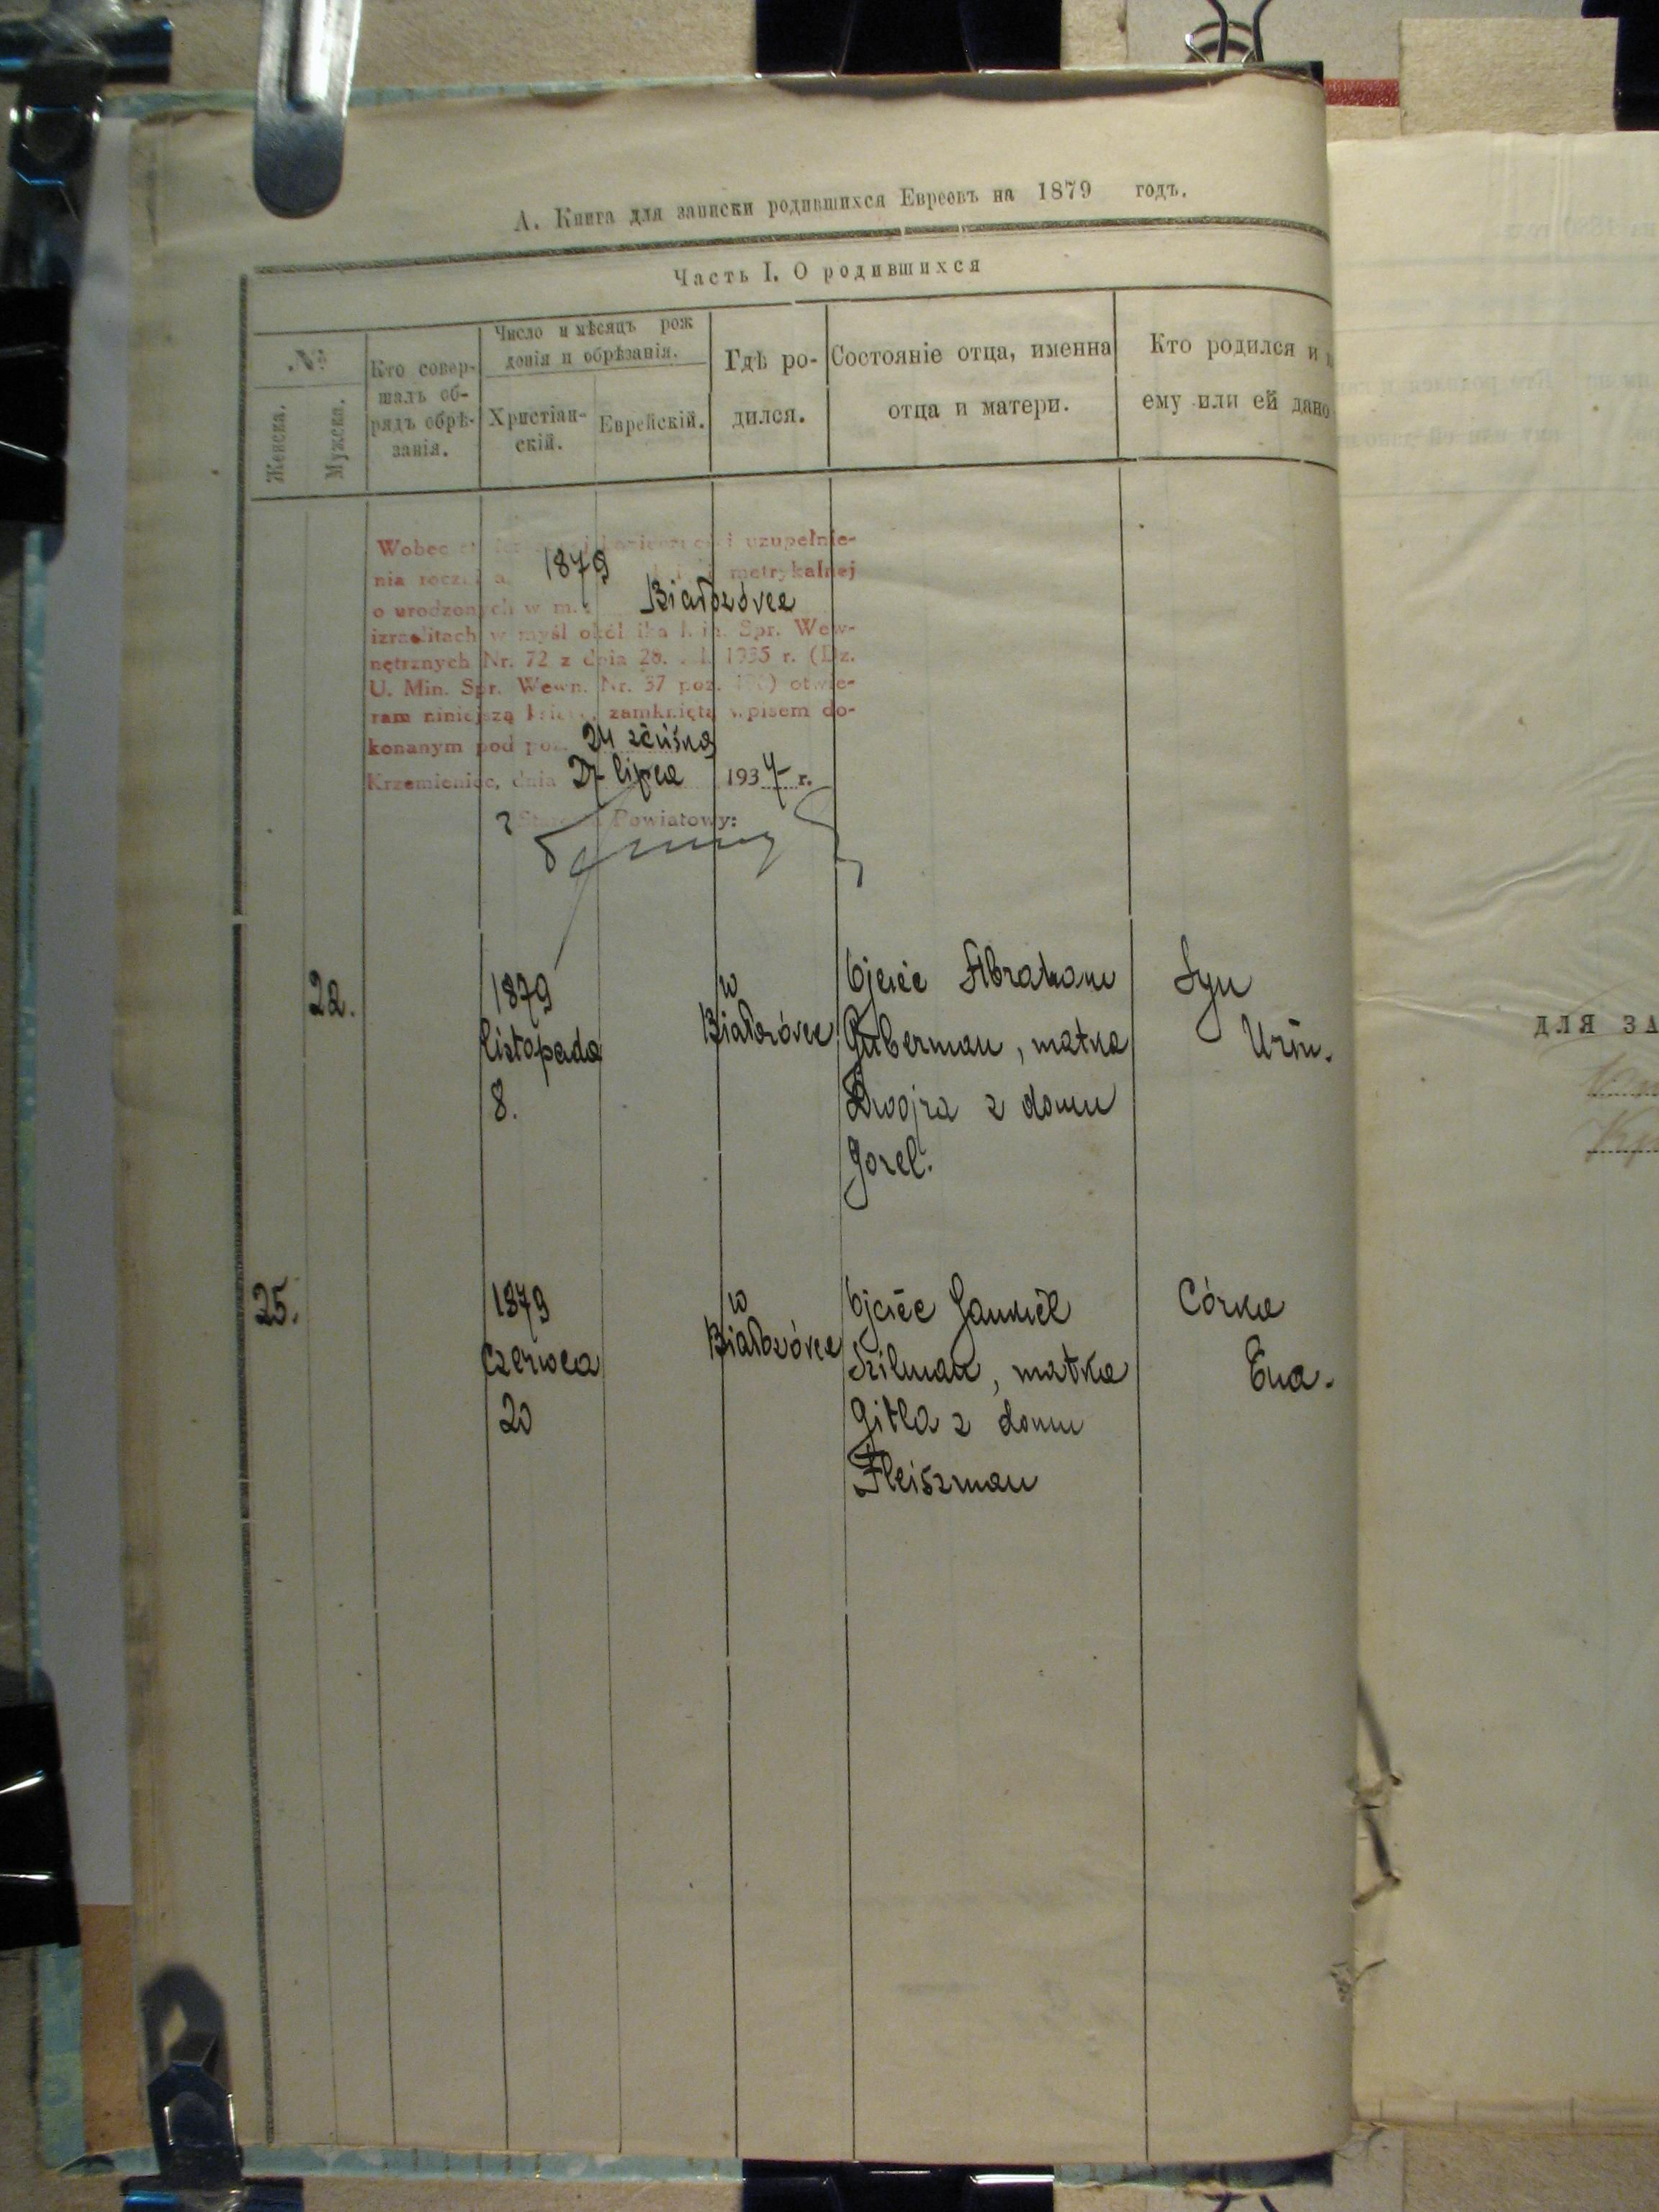 А. Книга для записки родившихся Евреевъ на 1879 годъ.
Часть I. О родившихся
№
Женска.
Мужска.
Кто совер-
шалъ об-
рядъ обрѣ-
занія.
Число и мѣсяцъ рож
денія и обрѣзанія.
Христіан-
скій.
Еврейскій.
Гдѣ ро-
дился.
Состояніе отца, имянна
отца и матери.
Кто родился и
ему или ей дано
Wobec uzupełnie-
nia 1879 metrykalnej
o urodzonych w m. Białozórce
izraelitach w myśl okólnika Min. Spr. Wew-
nętrznych Nr. 72 z dnia 1935 r. (Dz.
U. Min. Spr. Wewn. Nr. 37 poz. ) otwie-
ram niniejszą księgę, zamkniętą wpisem do-
konanym pod poz. 24
Krzemieniec, dnia 27 lipca 1937 r.
Starosta Powiatowy:
22.
1879
listopada
8.
w
Białozórce
Ojciec Abraham
Guberman, matka
Dwojra z domu
Gorel.
Syn
25.
1879
czerwca
20
w
Białozórce
Ojciec
Szilman, matka
Gitla z domu
Fleiszman
Córka
для за